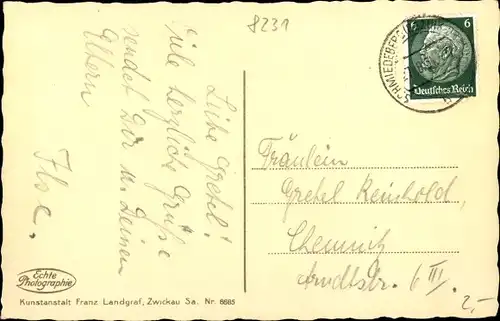 8231
Liebe Gretel!
Viele herzliche Grüße
sendet Dir u. Deinen
Eltern
Ilse.
6
Deutsches Reich
SCHMIEDEBERG
Fräulein
Gretel Reinhold,
Chemnitz
Arndtstr. 6 III.
2,-
Echte
Photographie
Kunstanstalt Franz Landgraf, Zwickau Sa. Nr. 6685